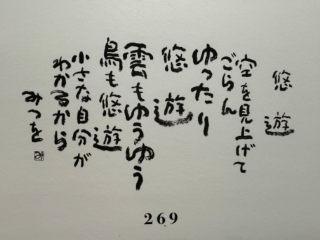 悠遊
空を見上げて
ごらん
ゆったり
悠遊
雲もゆうゆう
鳥も悠遊
小さな自分が
わかるから
みつを
269